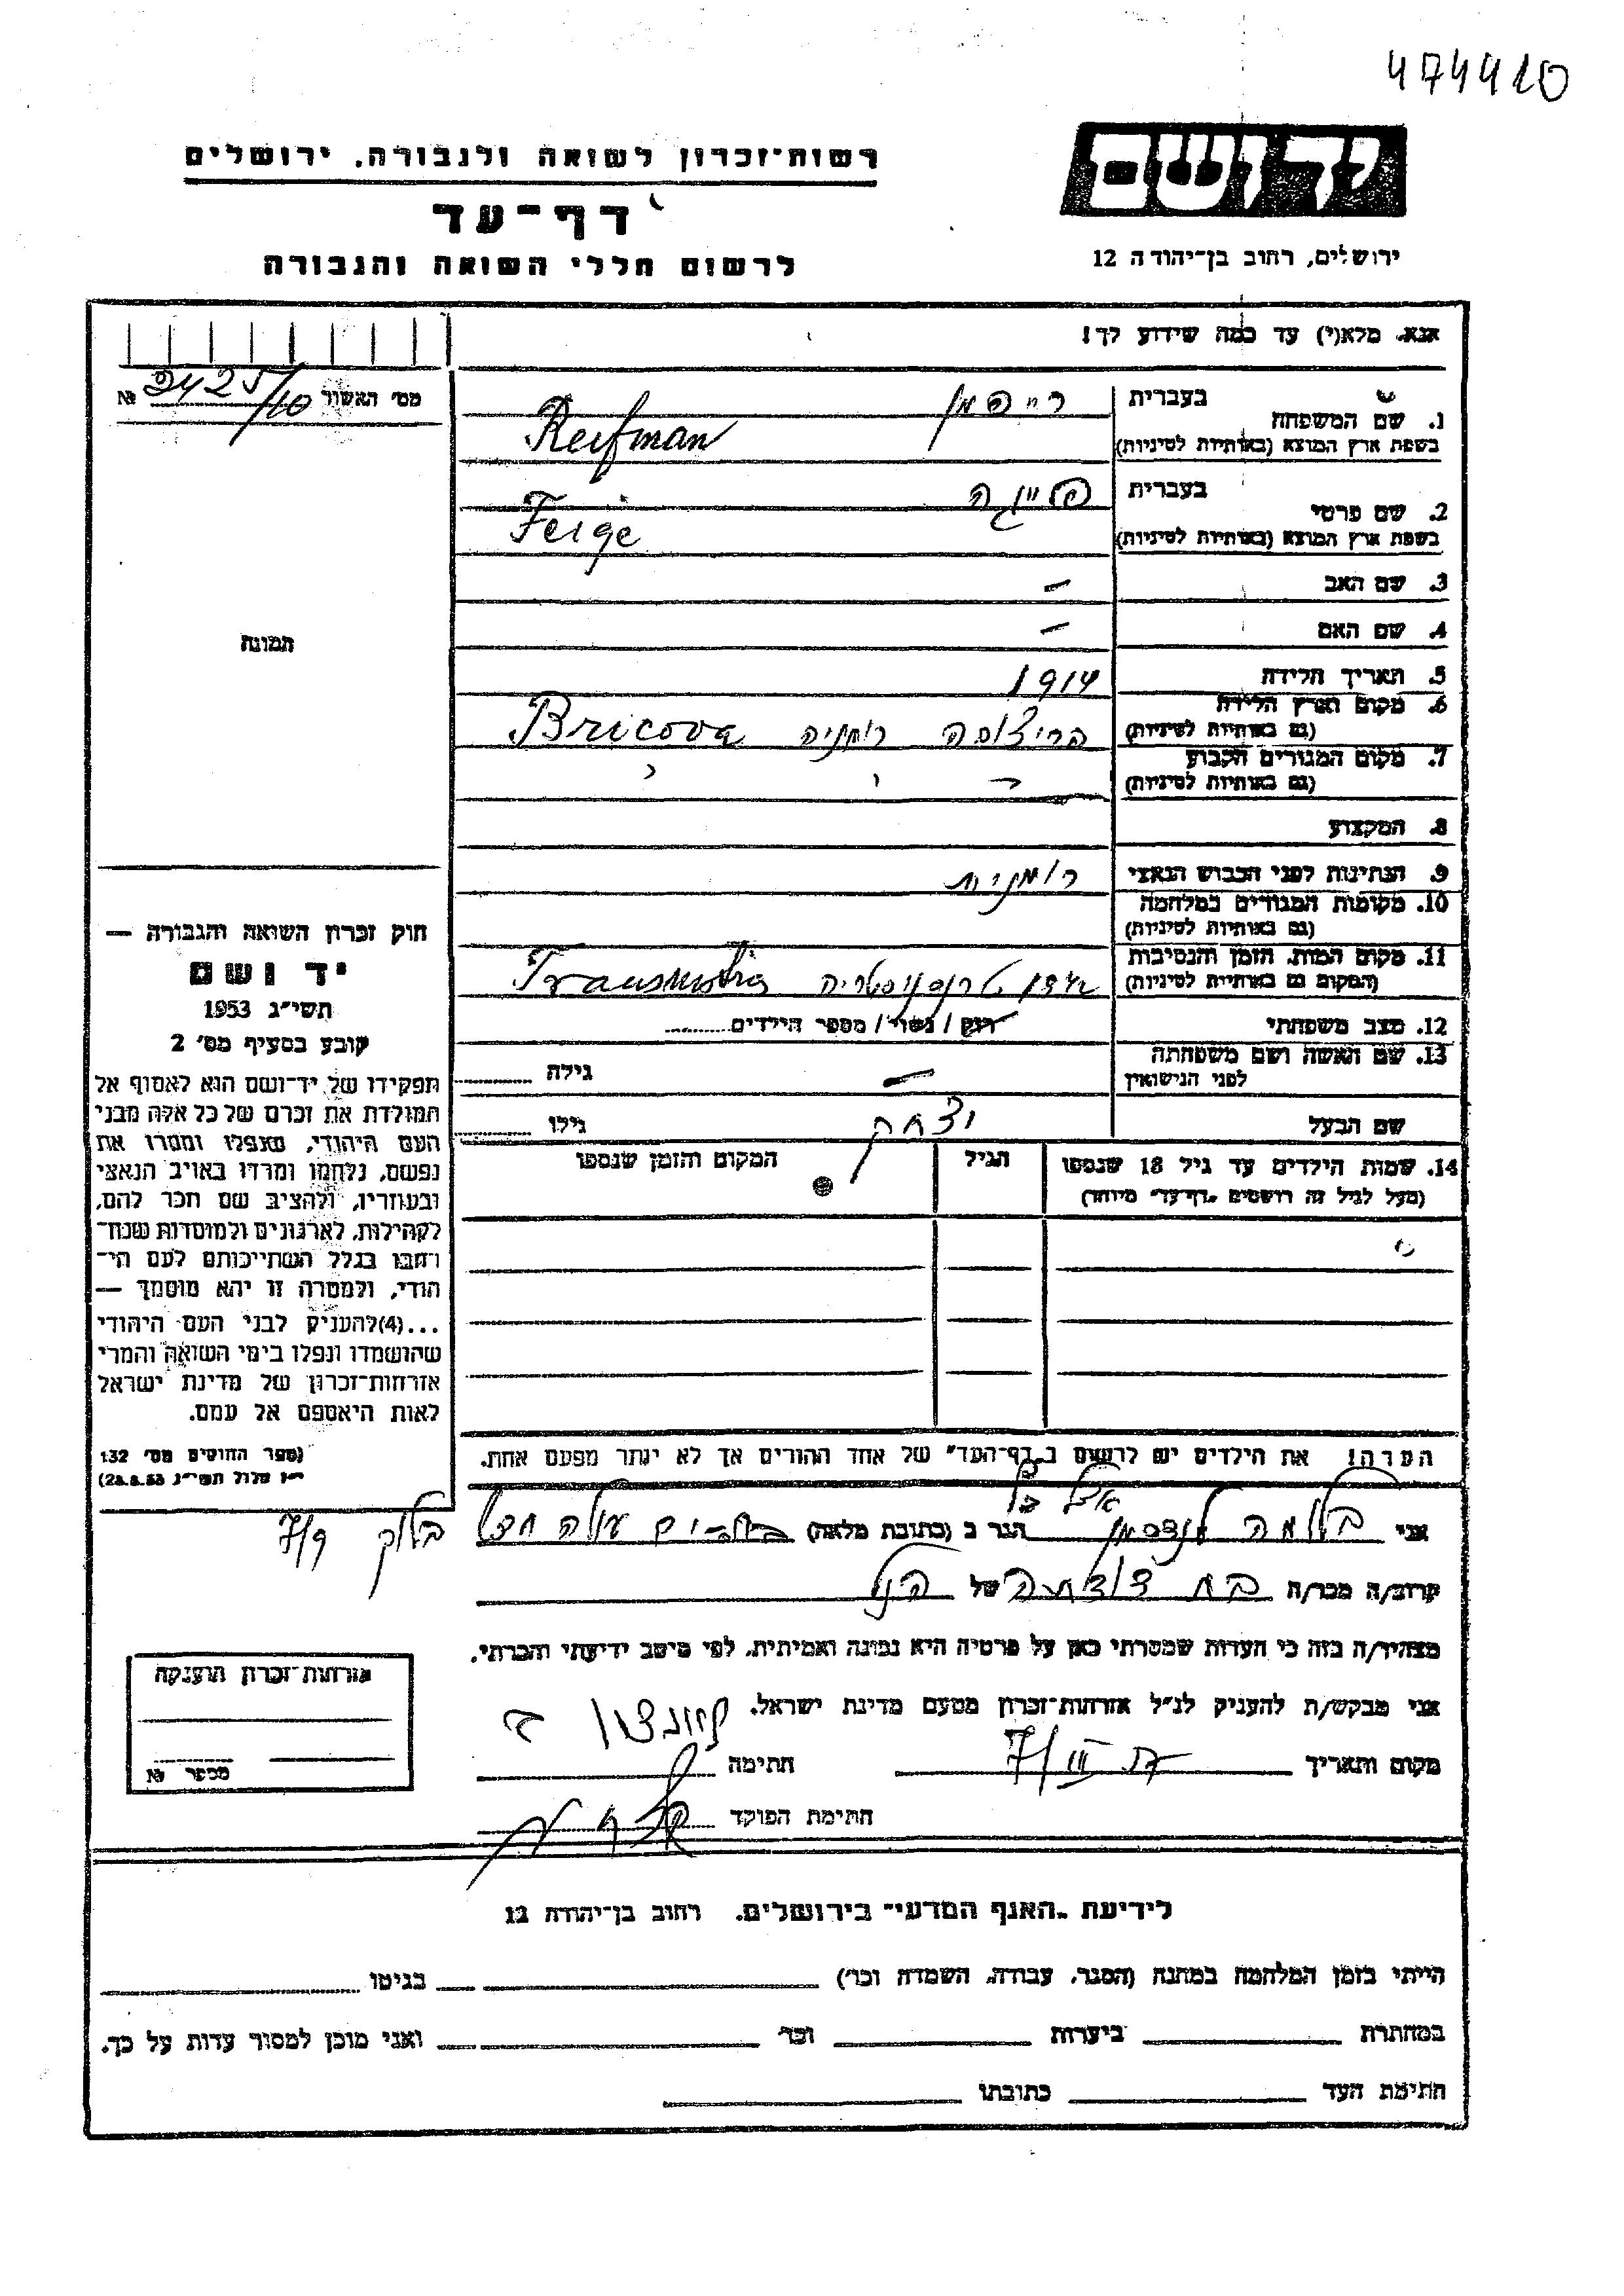 474410
יד ושם
רשות־זכרון לשואה ולגבורה, ירושלים
דף־עד
לרשום חללי השואה והגבורה
ירושלים, רחוב בן־יהודה 12
אנא, מלא(י) עד כמה שידוע לך!
מס׳ האשור 2425/10 №
1. שם המשפחה
בעברית רייפמן
בשפת ארץ המוצא (באותיות לטיניות) Reifman
2. שם פרטי
בעברית פייגה
בשפת ארץ המוצא (באותיות לטיניות) Feige
3. שם האב –
4. שם האם –
תמונה
5. תאריך הלידה 1914
6. מקום וארץ הלידה
(גם באותיות לטיניות) בריצ׳ובה רומניה Bricova
7. מקום המגורים הקבוע
(גם באותיות לטיניות) " " "
8. המקצוע
9. הנתינות לפני הכבוש הנאצי רומנית
10. מקומות המגורים במלחמה
(גם באותיות לטיניות)
11. מקום המות, הזמן והנסיבות
(המקום גם באותיות לטיניות) טרנסניסטריה Transnistria
12. מצב משפחתי רווק / נשוי / מספר הילדים
13. שם האשה ושם משפחתה
לפני הנישואין – גילה
שם הבעל יצחק גילו
14. שמות הילדים עד גיל 18 שנספו הגיל המקום והזמן שנספו
(מעל לגיל זה רושמים "דף־עד" מיוחד)
חוק זכרון השואה והגבורה —
יד ושם
תשי״ג 1953
קובע בסעיף מס׳ 2
תפקידו של יד־ושם הוא לאסוף אל
המולדת את זכרם של כל אלה מבני
העם היהודי, שנפלו ומסרו את
נפשם, נלחמו ומרדו באויב הנאצי
ובעוזריו, ולהציב שם וזכר להם,
לקהילות, לארגונים ולמוסדות שנח־
רבו בגלל השתייכותם לעם הי־
הודי, ולמטרה זו יהא מוסמך —
...(4)להעניק לבני העם היהודי
שהושמדו ונפלו בימי השואה והמרי
אזרחות־זכרון של מדינת ישראל
לאות היאספם אל עמם.
(ספר החוקים מס׳ 132
י״ז אלול תשי״ג 28.8.53)
הערה! את הילדים יש לרשום ב"דף־העד" של אחד ההורים אך לא יותר מפעם אחת.
אני הגר ב (כתובת מלאה) בלוק 7/9
קרוב/ה מכר/ה בת דודתה של הנ״ל
מצהיר/ה בזה כי העדות שמסרתי כאן על פרטיה היא נכונה ואמיתית, לפי מיטב ידיעתי והכרתי.
אני מבקש/ת להעניק לנ״ל אזרחות־זכרון מטעם מדינת ישראל.
מקום ותאריך חתימה
חתימת הפוקד
אזרחות־זכרון הוענקה
מספר №
לידיעת "האגף המדעי" בירושלים, רחוב בן־יהודה 12
הייתי בזמן המלחמה במחנה (הסגר, עבודה, השמדה וכו׳) בגיטו
במחתרת ביערות וכו׳ ואני מוכן למסור עדות על כך.
חתימת העד כתובתו